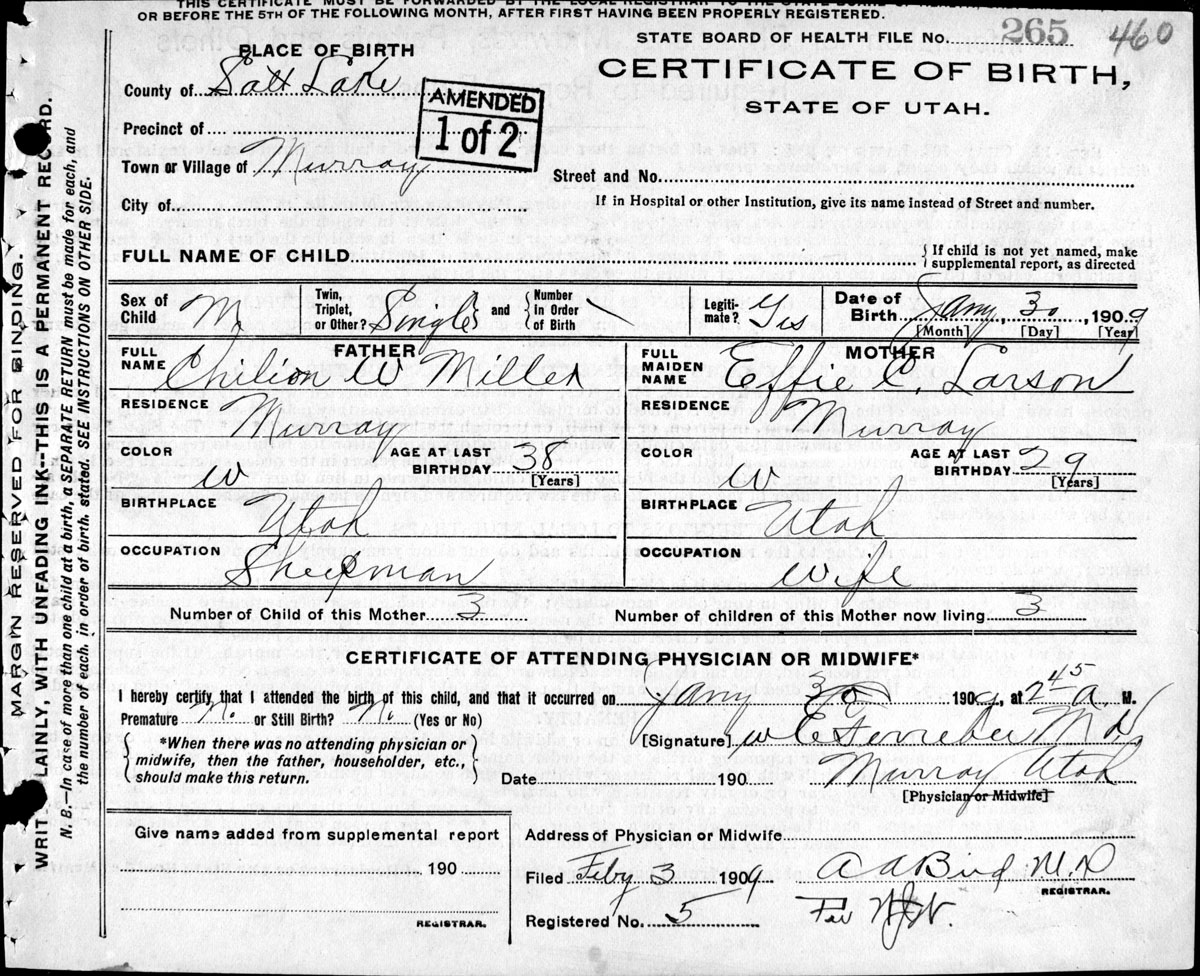 THIS CERTIFICATE MUST BE FORWARDED BY THE LOCAL REGISTRAR TO THE STATE BOARD OF
OR BEFORE THE 5TH OF THE FOLLOWING MONTH, AFTER FIRST HAVING BEEN PROPERLY REGISTERED.
STATE BOARD OF HEALTH FILE NO. 265 460
PLACE OF BIRTH
CERTIFICATE OF BIRTH,
STATE OF UTAH.
County of Salt Lake
AMENDED
1 of 2
Precinct of
Town or Village of Murray
Street and No.
City of
If in Hospital or other Institution, give its name instead of Street and number.
FULL NAME OF CHILD
{If child is not yet named, make
supplemental report, as directed
Sex of Child M
Twin, Triplet, or Other? Single and
Number in Order of Birth
Legitimate? Yes
Date of Birth Jany 30, 1909
[Month] [Day] [Year]
FATHER
FULL NAME Chilion W Miller
RESIDENCE Murray
COLOR W
AGE AT LAST BIRTHDAY 38
[Years]
BIRTHPLACE Utah
OCCUPATION Sheepman
MOTHER
FULL MAIDEN NAME Effie C. Larson
RESIDENCE Murray
COLOR W
AGE AT LAST BIRTHDAY 29
[Years]
BIRTHPLACE Utah
OCCUPATION Wife
Number of Child of this Mother 3
Number of children of this Mother now living 3
CERTIFICATE OF ATTENDING PHYSICIAN OR MIDWIFE*
I hereby certify, that I attended the birth of this child, and that it occurred on Jany 30 1909, at 2 45 a. M.
Premature No. or Still Birth? No. (Yes or No)
*When there was no attending physician or
midwife, then the father, householder, etc.,
should make this return.
[Signature] M D
Date 190
Murray Utah
[Physician or Midwife]
Give name added from supplemental report
190
REGISTRAR.
Address of Physician or Midwife
Filed Feby 3 1909
A A Bird M.D
REGISTRAR.
Registered No. 5
Per
MARGIN RESERVED FOR BINDING.
WRIT LAINLY, WITH UNFADING INK—THIS IS A PERMANENT RECORD.
N. B.—In case of more than one child at a birth, a SEPARATE RETURN must be made for each, and
the number of each, in order of birth, stated. SEE INSTRUCTIONS ON OTHER SIDE.